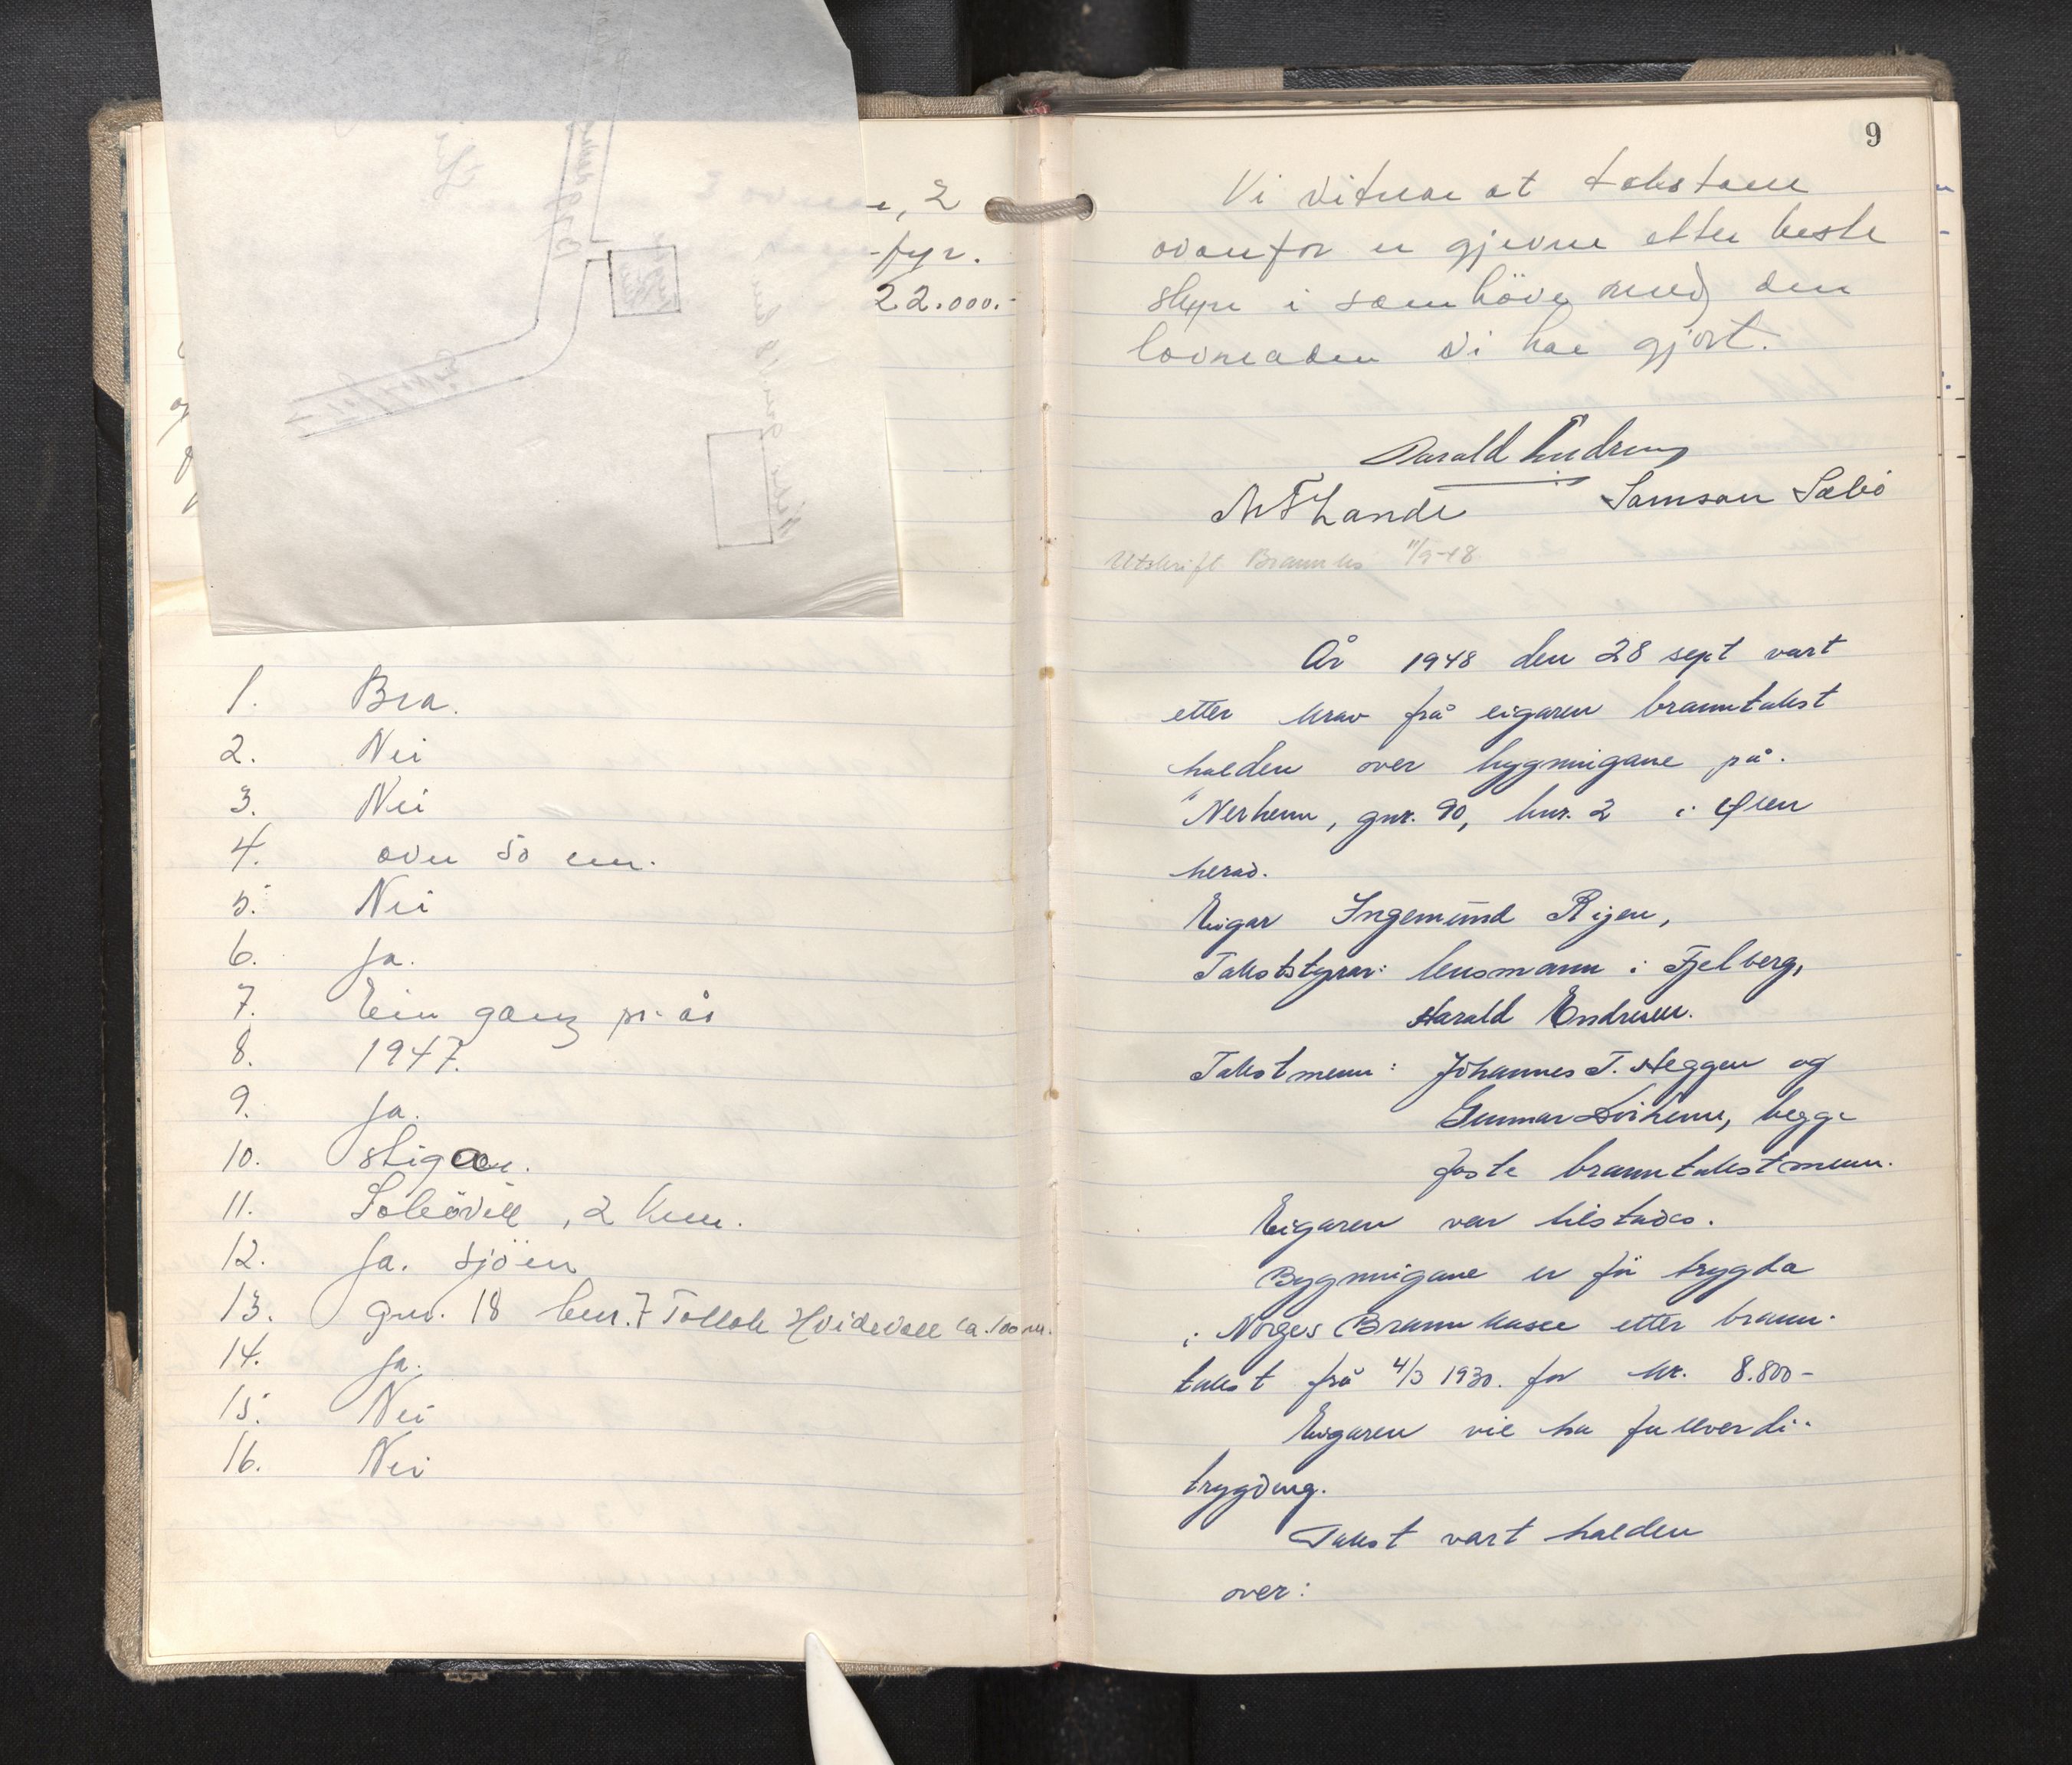 2
fyr.
22.000.-
1. Bra.
2. Nei
3. Nei
4. over 50 cm.
5. Nei
6. Ja.
7. Ein gang pr. år
8. 1947.
9. Ja.
10. stigar.
11. 2 km.
12. Ja. Sjöen
13. gnr. 18 bnr. 7 Tollak Hvidevoll ca. 100 m.
14. Ja.
15. Nei
16. Nei
9
Vi vitnar at takstane
ovanfor er gjevne etter beste
skyn i samhöve med den
lovnaden vi har gjort.
Harald Endresen
Lande Samson Sæbö
Utskrift Brannks 11/9-48
År 1948 den 28 sept vart
etter krav frå eigaren branntakst
halden over bygningane på
Nerheim, gnr. 90, bnr. 2 i Ølen
herad.
Eigar Ingemund
Takststyrar: lensmann i Fjelberg,
Harald Endresen.
Takstmenn: Johannes T. Heggen og
Gunnar begge
faste branntakstmenn.
Eigaren var tilstades.
Bygningane er för trygda
i Norges Brannkasse etter brann-
takst frå 4/3 1930. for kr. 8.800-
Eigaren vil ha fullverdi-
trygding.
Takst vart halden
over: